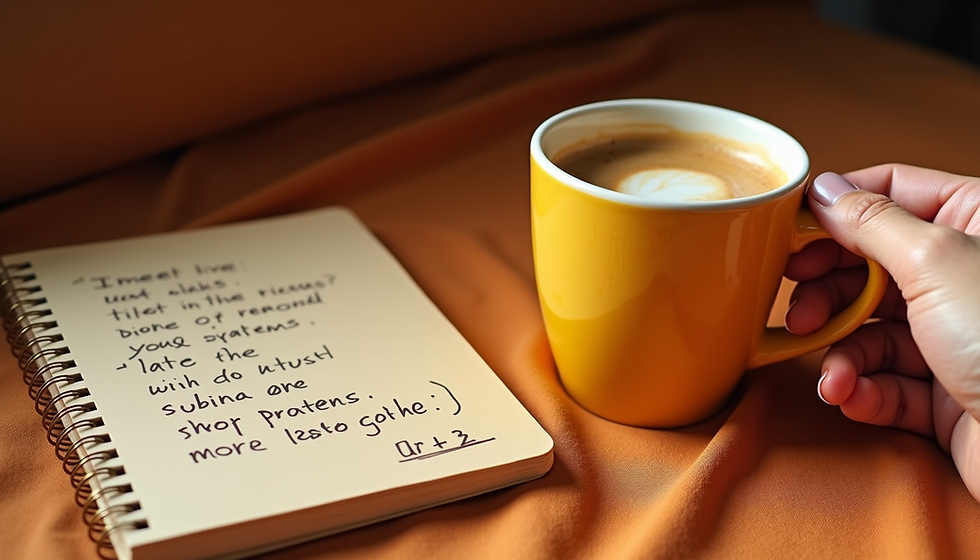 I meet live:
und alaks.
tilet in the rieuas?
Dione of remond
your systems.
late the
wiih do utusH
subina are
shor pratens.
more lasto gothe:)
Qr + 2